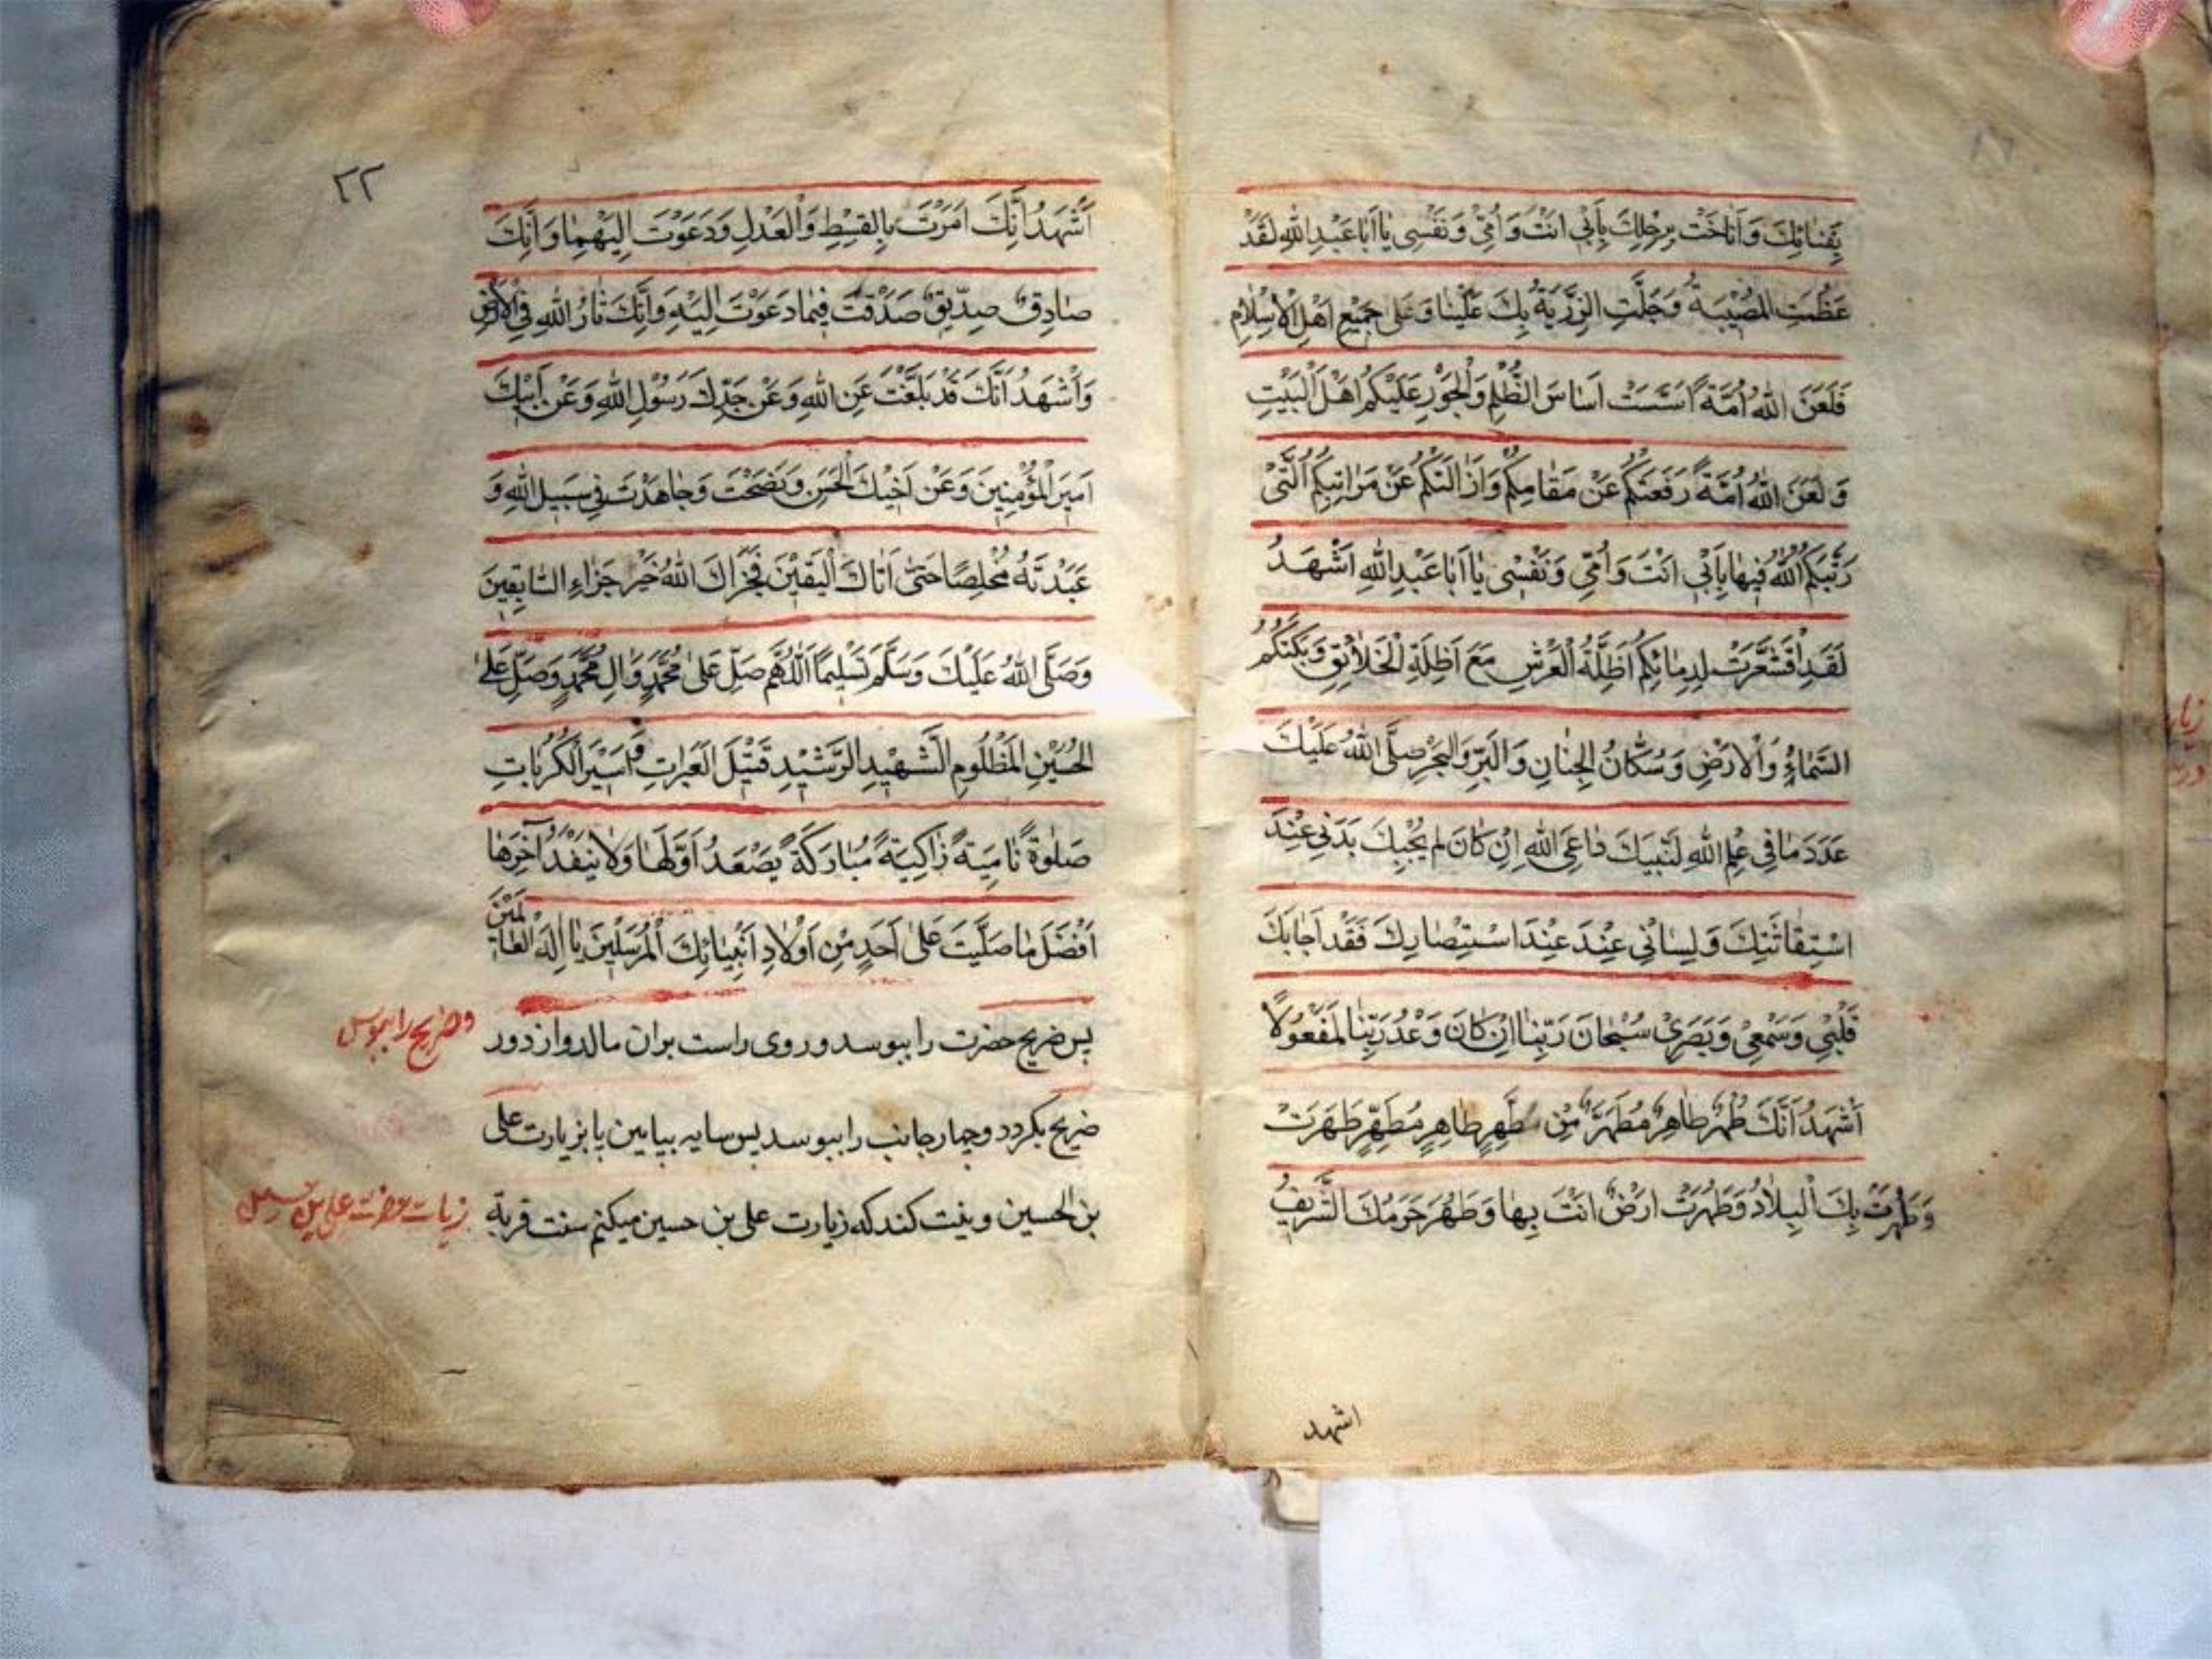 بِفِنائِكَ وَ اَناخَتْ بِرَحْلِكَ بِاَبى اَنْتَ وَ اُمّى وَ نَفْسى يا اَبا عَبْدِ اللهِ لَقَدْ
عَظُمَتِ المُصيبَةُ وَ جَلَّتِ الرَّزِيَّةُ بِكَ عَلَيْنا وَ عَلى جَميعِ اَهْلِ الْاِسْلامِ
فَلَعَنَ اللهُ اُمَّةً اَسَّسَتْ اَساسَ الظُّلْمِ وَالْجَوْرِ عَلَيْكُمْ اَهْلَ الْبَيْتِ
وَ لَعَنَ اللهُ اُمَّةً دَفَعَتْكُمْ عَنْ مَقامِكُمْ وَ اَزالَتْكُمْ عَنْ مَراتِبِكُمُ الَّتى
رَتَّبَكُمُ اللهُ فيها بِاَبى اَنْتَ وَ اُمّى وَ نَفْسى يا اَبا عَبْدِ اللهِ اَشْهَدُ
لَقَدِ اقْشَعَرَّتْ لِدِمائِكُمْ اَظِلَّةُ الْعَرْشِ مَعَ اَظِلَّةِ الْخَلائِقِ وَ بَكَتْكُمُ
السَّماءُ وَالْاَرْضُ وَ سُكّانُ الْجِنانِ وَ الْبَرِّ وَالْبَحْرِ صَلَّى اللهُ عَلَيْكَ
عَدَدَ ما فى عِلْمِ اللهِ لَبَّيْكَ داعِىَ اللهِ اِنْ كانَ لَمْ يُجِبْكَ بَدَنى عِنْدَ
اسْتِقاثَتِكَ وَ لِسانى عِنْدَ عِنْدَ اسْتِنْصارِكَ فَقَدْ اَجابَكَ
قَلْبى وَ سَمْعى وَ بَصَرى سُبْحانَ رَبِّنا اِنْ كانَ وَعْدُ رَبِّنا لَمَفْعُولاً
اَشْهَدُ اَنَّكَ طُهْرٌ طاهِرٌ مُطَهَّرٌ مِنْ طُهْرٍ طاهِرٍ مُطَهَّرٍ طَهُرْتَ
وَ طَهُرَتْ بِكَ الْبِلادُ وَ طَهُرَتْ اَرْضٌ اَنْتَ بِها وَ طَهُرَ حَرَمُكَ الشَّريفُ
اشهد
٢٢
اَشْهَدُ اَنَّكَ اَمَرْتَ بِالْقِسْطِ وَالْعَدْلِ وَ دَعَوْتَ اِلَيْهِما وَ اَنَّكَ
صادِقٌ صِدّيقٌ صَدَقْتَ فيما دَعَوْتَ اِلَيْهِ وَ اَنَّكَ ثارُ اللهِ فِى الْاَرْضِ
وَ اَشْهَدُ اَنَّكَ قَدْ بَلَّغْتَ عَنِ اللهِ وَ عَنْ جَدِّكَ رَسُولِ اللهِ وَ عَنْ اَبيكَ
اَميرِ الْمُؤْمِنينَ وَ عَنْ اَخيكَ الْحَسَنِ وَ نَصَحْتَ وَ جاهَدْتَ فى سَبيلِ اللهِ وَ
عَبَدْتَهُ مُخْلِصًا حَتّى اَتاكَ الْيَقينُ فَجَزاكَ اللهُ خَيْرَ جَزاءِ السّابِقينَ
وَ صَلَّى اللهُ عَلَيْكَ وَ سَلَّمَ تَسْليمًا اَللّهُمَّ صَلِّ عَلى مُحَمَّدٍ وَ الِ مُحَمَّدٍ وَ صَلِّ عَلَى
الْحُسَيْنِ الْمَظْلُومِ الشَّهيدِ الرَّشيدِ قَتيلِ الْعَبَراتِ وَ اَسيرِ الْكُرُباتِ
صَلوةً نامِيَةً زاكِيَةً مُبارَكَةً يَصْعَدُ اَوَّلُها وَ لا يَنْفَدُ آخِرُها
اَفْضَلَ ما صَلَّيْتَ عَلى اَحَدٍ مِنْ اَوْلادِ اَنْبِيائِكَ الْمُرْسَلينَ يا اِلهَ الْعالَمينَ
پس ضريح حضرت را ببوسد و روى راست بران مالد و از دور
وضريح را ببوس
ضريح بگردد و چهار جانب را ببوسد پس سايه بپايين پا بزيارت على
بن الحسين و نيت كند كه زيارت على بن حسين ميكنم سنت قربة
زيارت حضرت على بن حسين